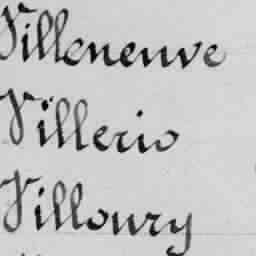 Villeneuve
Villerio
Villoury